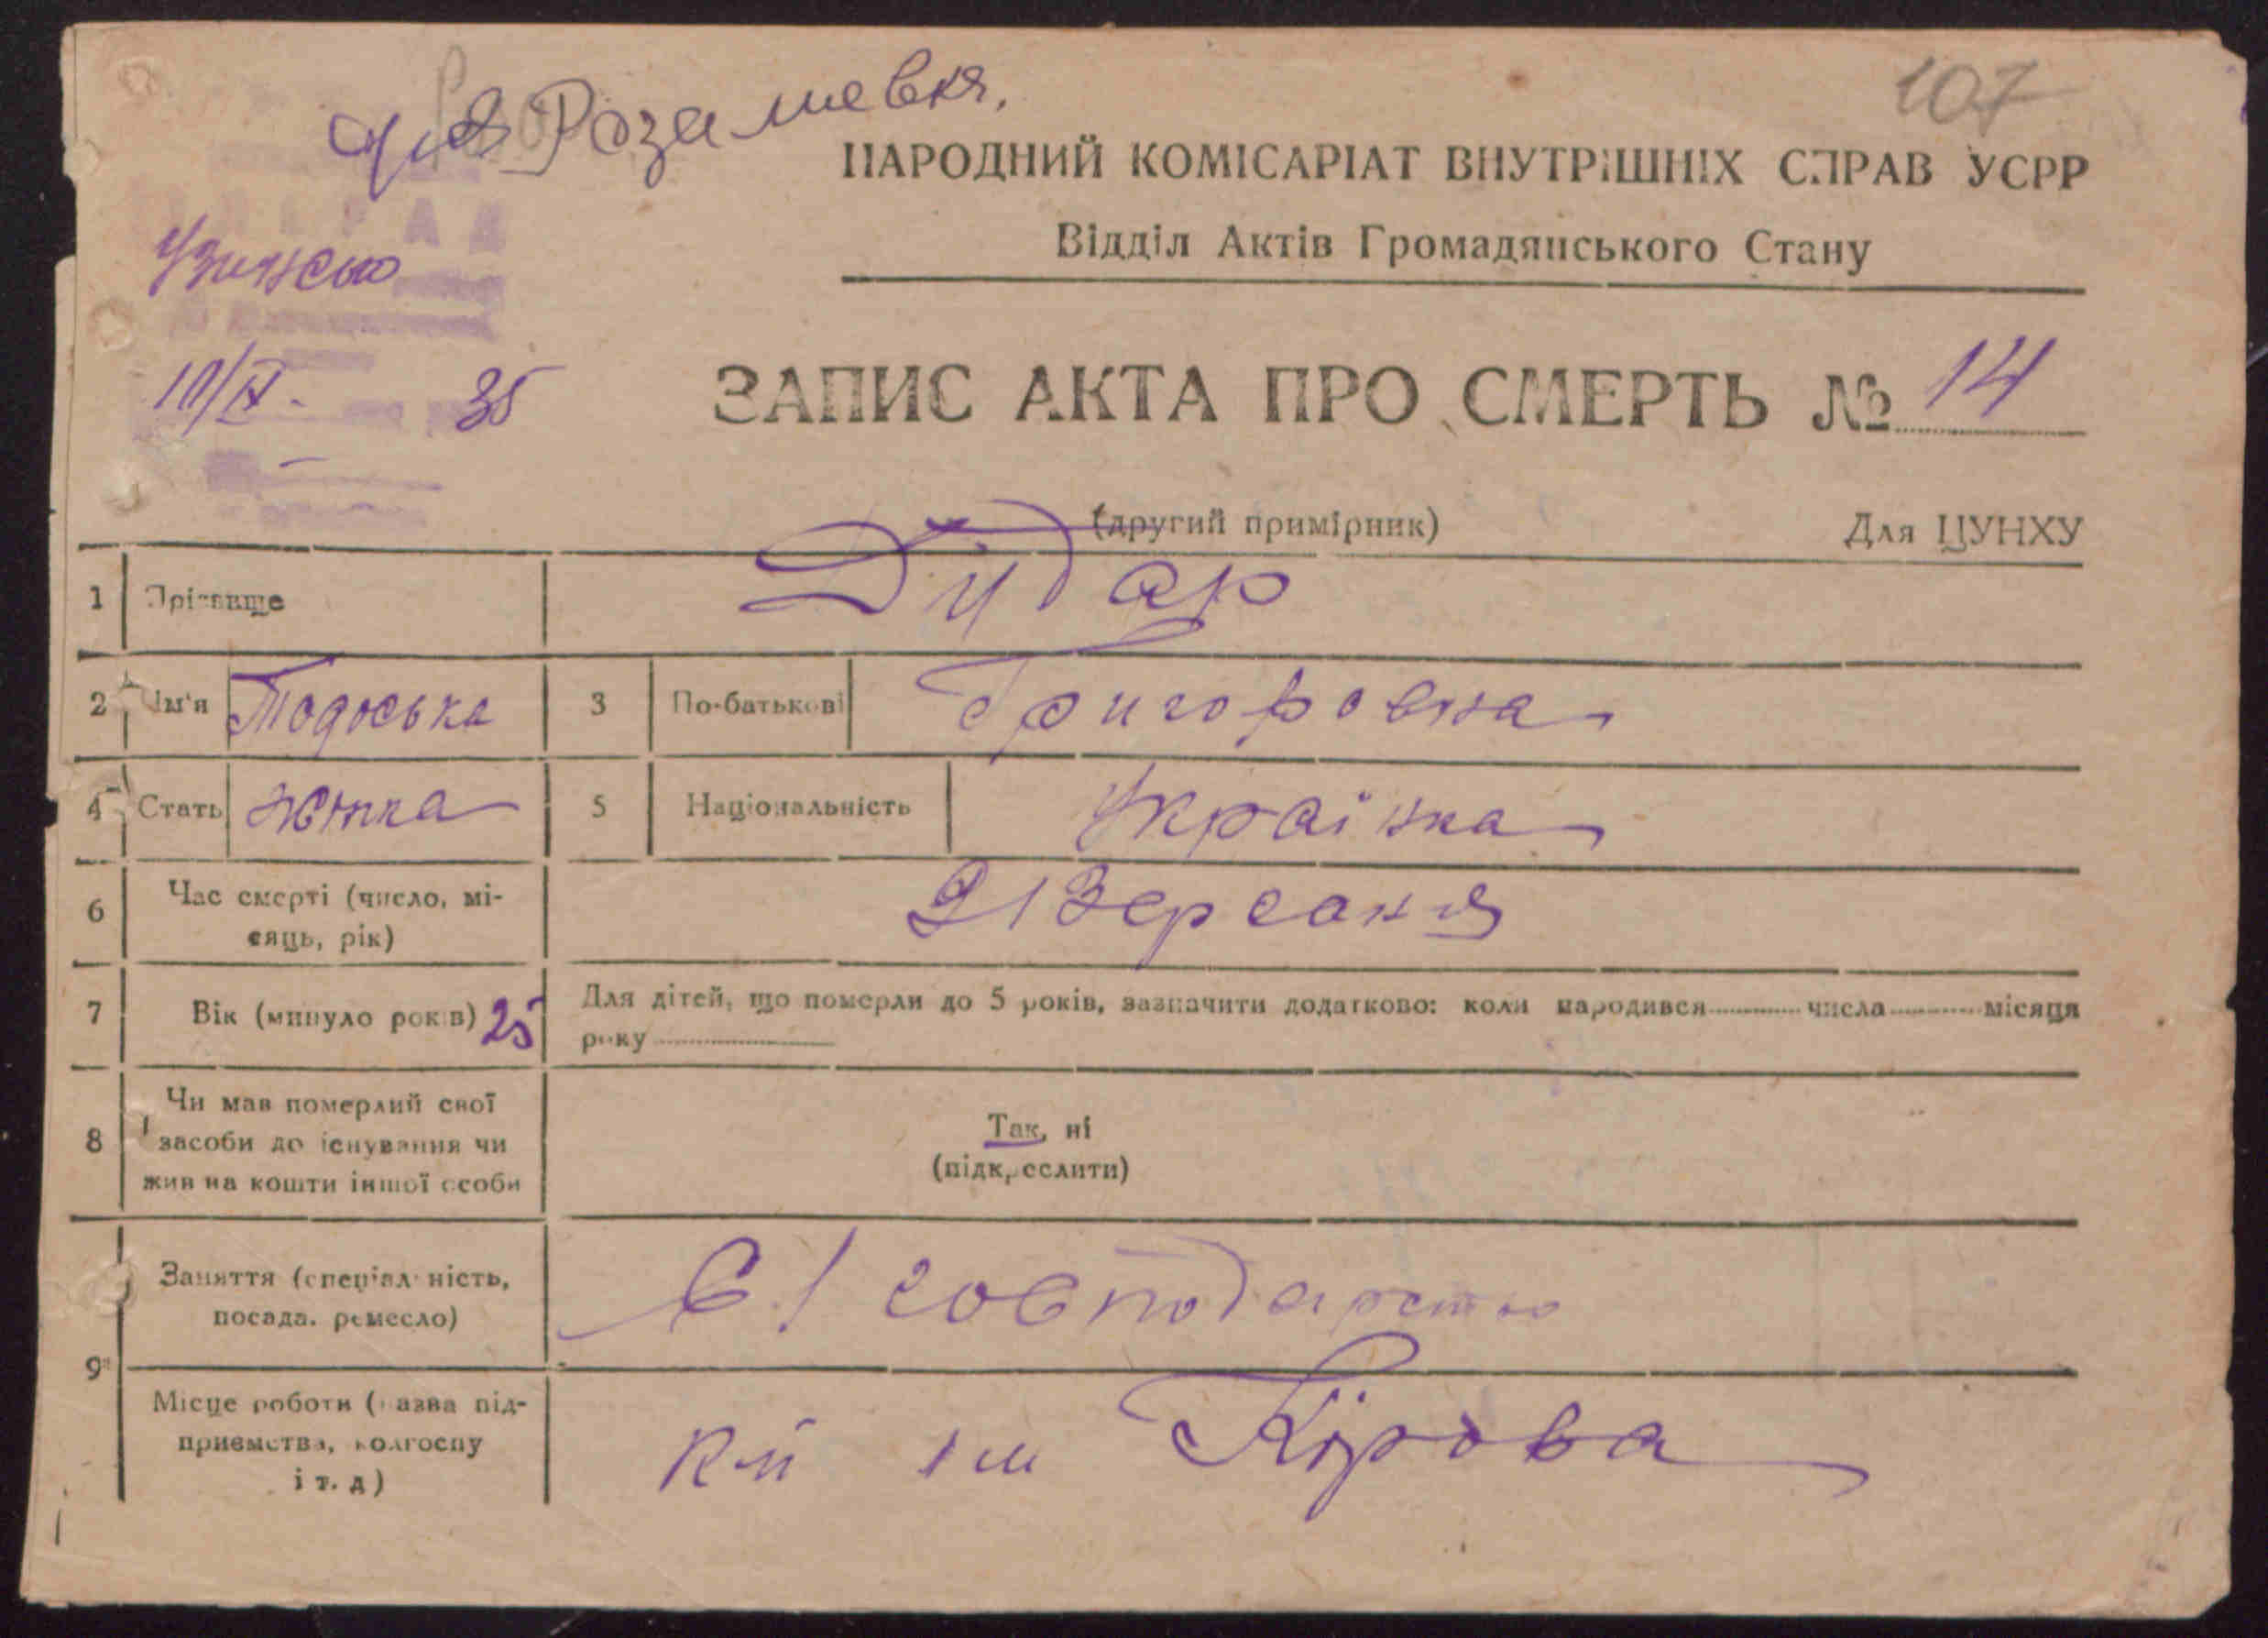 107
НАРОДНИЙ КОМІСАРІАТ ВНУТРІШНІХ СПРАВ УСРР
Відділ Актів Громадянського Стану
10/IX. 35
ЗАПИС АКТА ПРО СМЕРТЬ № 14
(другий примірник) Для ЦУНХУ
1 Прізвище Дудар
2 Ім'я Тодоська 3 По-батькові Григоровна
4 Стать жінка 5 Національність Українка
6 Час смерті (число, мі-
сяць, рік)
21 Вересня
7 Вік (минуло років) 25 Для дітей, що померли до 5 років, зазначити додатково: коли народився числа місяця
року
8 Чи мав померлий свої
засоби до існування чи
жив на кошти іншої особи
Так, ні
(підкреслити)
9 Заняття (спеціальність,
посада, ремесло)
Місце роботи (назва під-
приємства, колгоспу
і т. д)
ім Кірова